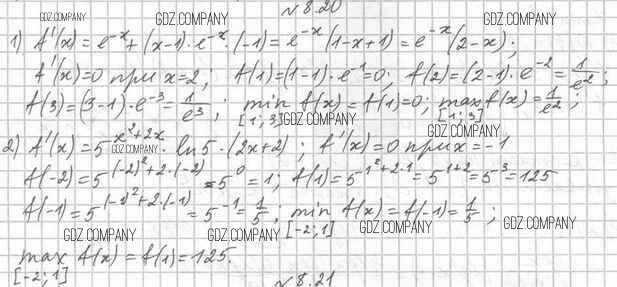 GDZ.COMPANY GDZ.COMPANY №8.20 GDZ.COMPANY
1) f'(x) = e^{-x} + (x-1)·e^{-x}·(-1) = e^{-x}(1-x+1) = e^{-x}(2-x);
f'(x)=0 при x=2; f(1)=(1-1)·e^{-1}=0; f(2)=(2-1)·e^{-2}=\frac{1}{e^2};
f(3)=(3-1)·e^{-3}=\frac{1}{e^3}; min_{[1;3]} f(x)=f(1)=0; max_{[1;3]} f(x)=\frac{1}{e^2};
GDZ.COMPANY GDZ.COMPANY
2) f'(x)=5^{x^2+2x}·ln5·(2x+2); f'(x)=0 при x=-1
GDZ.COMPANY
f(-2)=5^{(-2)^2+2·(-2)}=5^0=1; f(1)=5^{1^2+2·1}=5^{1+2}=5^{-3}=125
f(-1)=5^{(-1)^2+2·(-1)}=5^{-1}=\frac{1}{5}; min_{[-2;1]} f(x)=f(-1)=\frac{1}{5};
GDZ.COMPANY GDZ.COMPANY GDZ.COMPANY
max_{[-2;1]} f(x)=f(1)=125.
№8.21